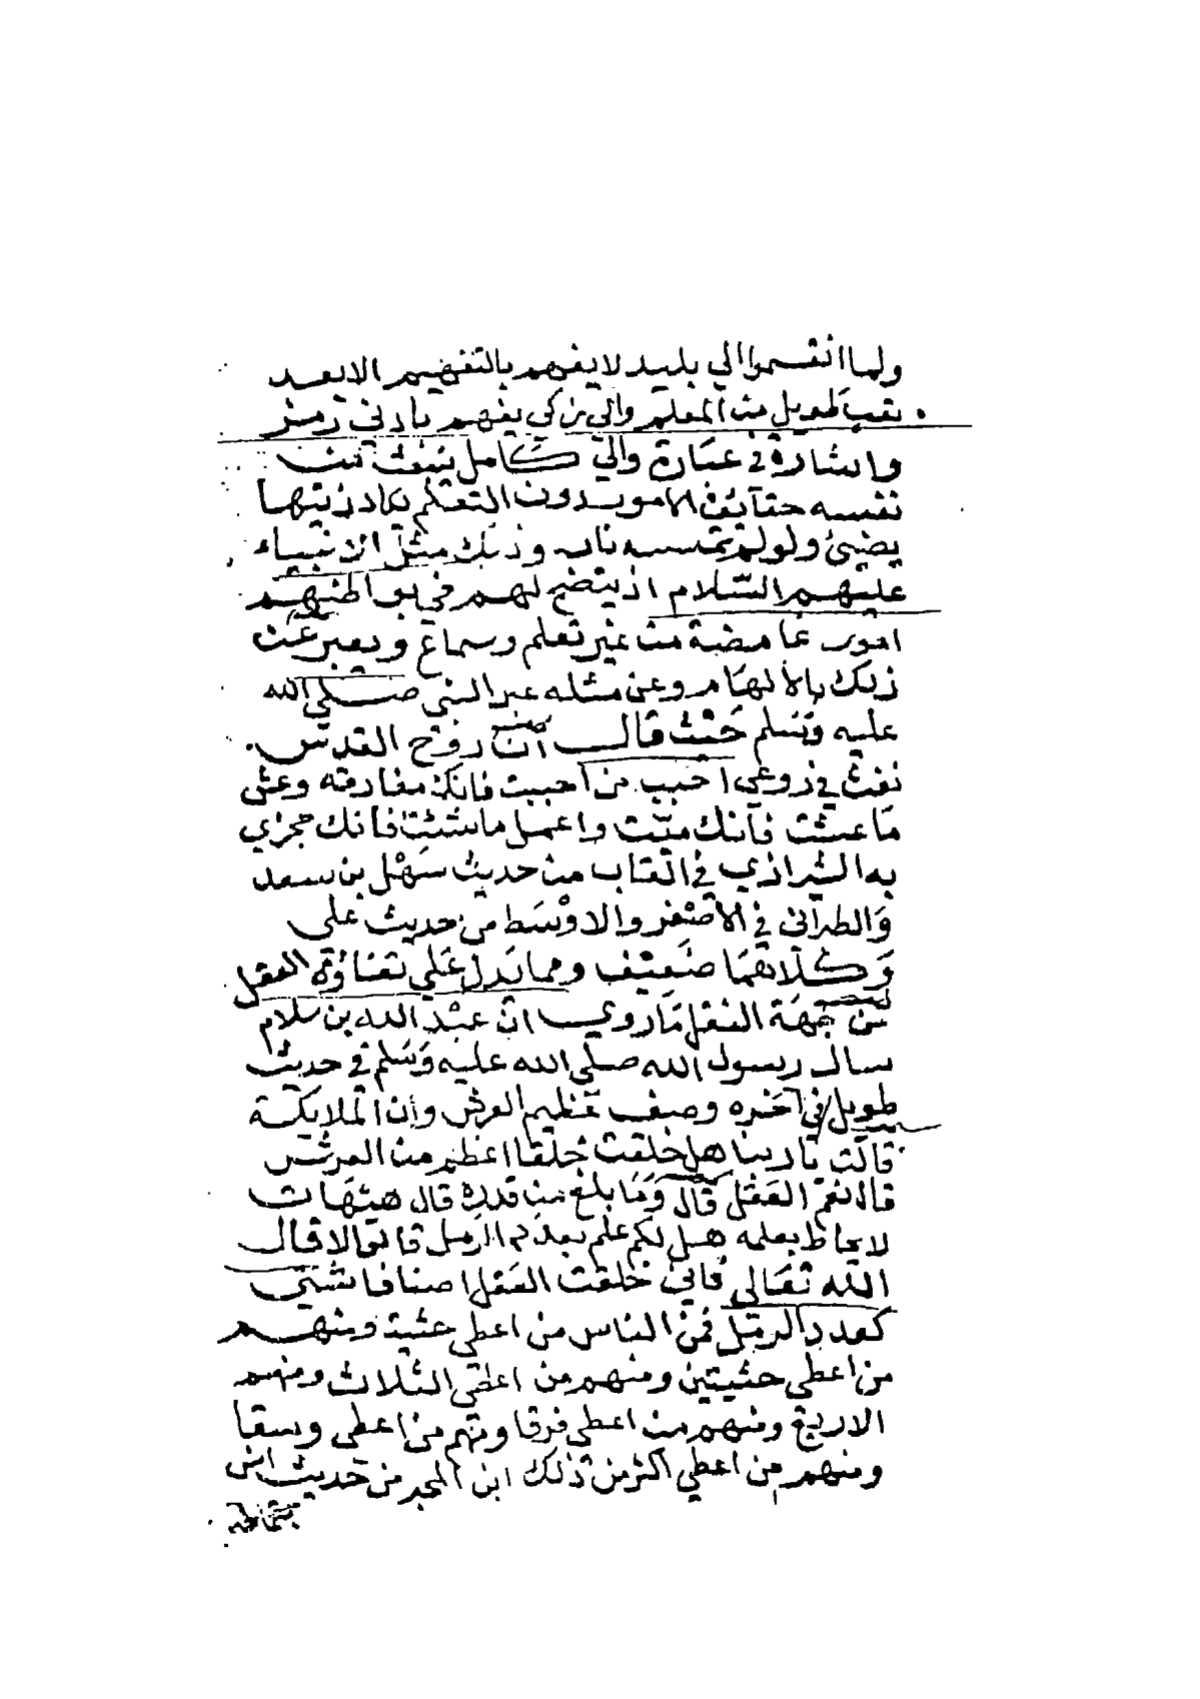 ولما انقسموا الي بليد لا يفهم بالتفهيم الا بعد
تعب طويل من المعلم والي زكي يفهم بادني رمز
واشارة في عبارة والي كامل تنبعث من
نفسه حقائق الامور بدون التعلم يكاد زيتها
يضيئ ولو لم تمسسه نار وذلك مثل الانبياء
عليهم السلام اذ يتضح لهم في بواطنهم
امور غامضة من غير تعلم وسماع ويعبر عن
ذلك بالالهام وعن مثله عبر النبي صلى الله
عليه وسلم حيث قال ان روح القدس
نفث في روعي احبب من احببت فانك مفارقه وعش
ما عشت فانك ميت واعمل ما شئت فانك مجزي
به الشيرازي في القاب من حديث سهل بن سعد
والطبراني في الاصغر والاوسط من حديث علي
وكلاهما ضعيف ومما يدل علي تفاوت العقل
من جهة النقل ما روي ان عبد الله بن سلام
سال رسول الله صلي الله عليه وسلم في حديث
طويل في آخره وصف عظيم العرش وان الملايكة
قالت يا ربنا هل خلقت خلقا اعظم من العرش
قال نعم العقل قال وما بلغ من قدره قال هيهات
لا يحاط بعلمه هل لكم علم بعدد الرمل قالوا لا قال
الله تعالي فاني خلقت العقل اصنافا شتي
كعدد الرمل فمن الناس من اعطي حثية ومنهم
من اعطي حثيتين ومنهم من اعطي الثلاث ومنهم
الاربع ومنهم من اعطي فرقا ومنهم من اعطي وسقا
ومنهم من اعطي اكثر من ذلك ابن المحبر من حديث انس